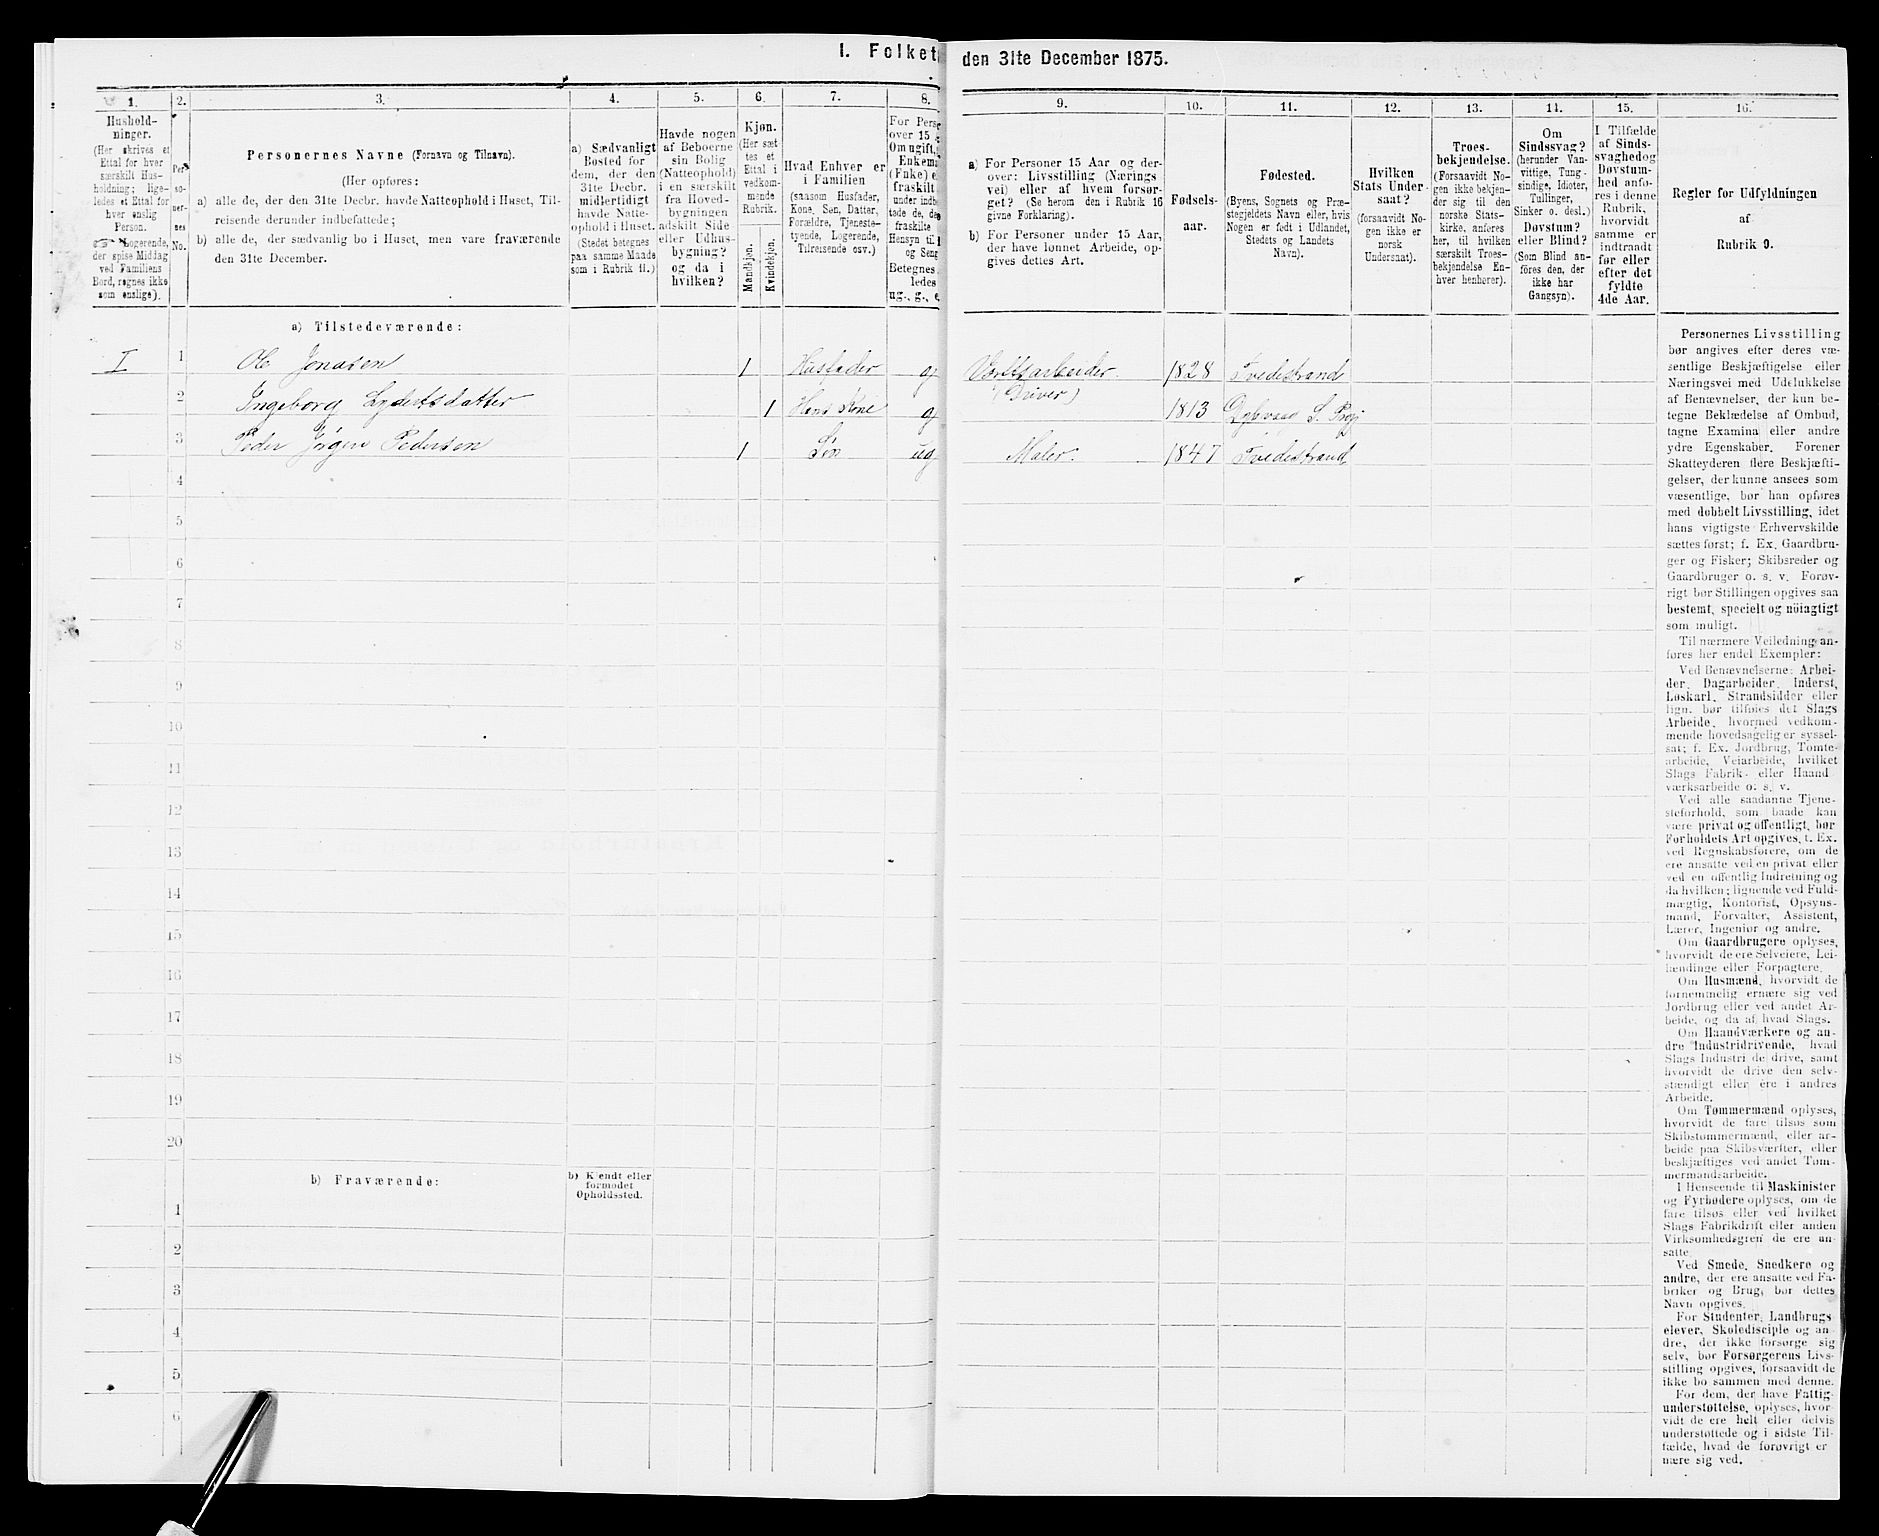 I. Folket
den 31te December 1875.
1.
2.
3.
4.
5.
6.
7.
8.
9.
10.
11.
12.
13.
14.
15.
16.
Hushold-
ninger.
(Her skrives et
Ettal for hver
særskilt Hus-
holdning; lige-
ledes et Ettal for
hver enslig
Person.
Logerende,
der spise Middag
ved Familiens
Bord, regnes ikke
som enslige).
Per-
so-
ner-
nes
No.
Personernes Navne (Fornavn og Tilnavn).
(Her opføres:
a) alle de, der den 31te Decbr. havde Natteophold i Huset, Til-
reisende derunder indbefattede;
b) alle de, der sædvanlig bo i Huset, men vare fraværende
den 31te December.
a) Sædvanligt
Bosted for
dem, der den
31te Decbr.
midlertidigt
havde Natte-
ophold i Huset.
(Stedet betegnes
paa samme Maade
som i Rubrik 11.)
Havde nogen
af Beboerne
sin Bolig
(Natteophold)
i en særskilt
fra Hoved-
bygningen
adskilt Side
eller Udhus-
bygning?
og da i
hvilken?
Kjøn.
(Her sæt
tes et
Ettal i
vedkom-
mende
Rubrik.
Mandkjøn.
Kvindekjøn.
Hvad Enhver er
i Familien
(saasom Husfader,
Kone, Søn, Datter,
Forældre, Tjeneste-
tyende, Logerende,
Tilreisende osv.)
For Pers
over 15
Om ugift,
Enkema
(Enke) e
fraskilt
under indb
tede de, de
fraskilte
Hensyn til
og Seng
Betegnes
ledes
ug., g., e
a) For Personer 15 Aar og der-
over: Livsstilling (Nærings
vei) eller af hvem forsør-
get? (Se herom den i Rubrik 16
givne Forklaring).
b) For Personer under 15 Aar,
der have lønnet Arbeide, op-
gives dettes Art.
Fødsels-
aar.
Fødested.
(Byens, Sognets og Præ-
stegjeldets Navn eller, hvis
Nogen er født i Udlandet,
Stedets og Landets
Navn).
Hvilken
Stats Under-
saat?
(forsaavidt No-
gen ikke er
norsk
Undersaat).
Troes-
bekjendelse.
(Forsaavidt No-
gen ikke bekjen-
der sig til den
norske Stats-
kirke, anføres
her, til hvilken
særskilt Troes-
bekjendelse En-
hver henhører).
Om
Sindssvag?
(herunder Van-
vittige, Tung-
sindige, Idioter,
Tullinger,
Sinker o. desl.)
Døvstum?
eller Blind?
(Som Blind an-
føres den, der
ikke har
Gangsyn).
I Tilfælde
af Sinds-
svaghed og
Døvstum-
hed anfø-
res i denne
Rubrik,
hvorvidt
samme er
indtraadt
før eller
efter det
fyldte
4de Aar.
Regler for Udfyldningen
af
Rubrik 9.
a) Tilstedeværende:
I 1 Ole Jonasen 1 Husfader g Værftsarbeider 1828 Tvedestrand
(Driver)
2 Ingeborg Lydertsdatter 1 Hans Kone g 1813 Dybvaag S. Præj
3 Peder Jörgen Pedersen 1 Søn ug Maler. 1847 Tvedestrand
4
5
6
7
8
9
10
11
12
13
14
15
16
17
18
19
20
b) Fraværende:
b) Kjendt eller
formodet
Opholdssted.
1
2
3
4
5
6
Personernes Livsstilling
bør angives efter deres væ-
sentlige Beskjæftigelse eller
Næringsvei med Udelukkelse
af Benævnelser, der kun be-
tegne Beklædelse af Ombud,
tagne Examina eller andre
ydre Egenskaber. Forener
Skatteyderen flere Beskjæfti-
gelser, der kunne ansees som
væsentlige, bør han opføres
med dobbelt Livsstilling, idet
hans vigtigste Erhvervskilde
sættes først; f. Ex. Gaardbru-
ger og Fisker; Skibsreder og
Gaardbruger o. s. v. Forøv-
rigt bør Stillingen opgives saa
bestemt, specielt og nöiagtigt
som muligt.
Til nærmere Veiledning an-
føres her endel Exempler:
Ved Benævnelserne: Arbei-
der, Dagarbeider, Inderst,
Løskarl, Strandsidder eller
lign. bør tilføies det Slags
Arbeide, hvormed vedkom-
mende hovedsagelig er syssel-
sat; f. Ex. Jordbrug, Tomte-
arbeide, Veiarbeide, hvilket
Slags Fabrik- eller Haand
værksarbeide o. s. v.
Ved alle saadanne Tjene-
steforhold, som baade kan
være privat og offentligt, bør
Forholdets Art opgives, t. Ex.
ved Regnskabsførere, om de
ere ansatte ved en privat eller
ved en offentlig Indretning og
da hvilken; lignende ved Fuld-
mægtig, Kontorist, Opsyns-
mand, Forvalter, Assistent,
Lærer, Ingeniør og andre.
Om Gaardbrugere oplyses,
hvorvidt de ere Selveiere, Lei-
lændinge eller Forpagtere.
Om Husmænd, hvorvidt de
fornemmelig ernære sig ved
Jordbrug eller ved andet Ar-
beide, og da af hvad Slags.
Om Haandværkere og an-
dre Industridrivende, hvad
Slags Industri de drive, samt
hvorvidt de drive den selv-
stændigt eller ere i andres
Arbeide.
Om Tømmermænd oplyses,
hvorvidt de fare tilsøs som
Skibstømmermænd, eller ar-
beide paa Skibsværfter, eller
beskjæftiges ved andet Tøm-
mermandsarbeide.
I Henseende til Maskinister
og Fyrbødere oplyses, om de
fare tilsøs eller ved hvilket
Slags Fabrikdrift eller anden
Virksomhedsgren de ere an-
satte.
Ved Smede, Snedkere og
andre, der ere ansatte ved Fa-
briker og Brug, bør dettes
Navn opgives.
For Studenter, Landbrugs
elever, Skoledisciple og an
dre, der ikke forsørge sig
selv, bør Forsørgerens Livs-
stilling opgives, forsaavidt de
ikke bo sammen med denne.
For dem, der have Fattig-
understøttelse, oplyses, hvor-
vidt de ere helt eller delvis
understøttede og i sidste Til-
fælde, hvad de forøvrigt er
nære sig ved.